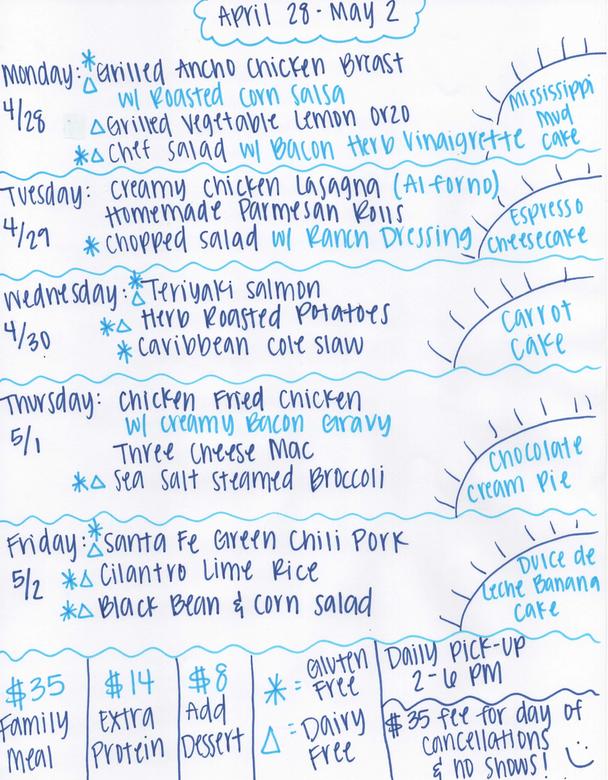 April 28 - May 2
Monday: * Grilled Ancho Chicken Breast
4/28 △ w/ Roasted Corn Salsa
△ Grilled Vegetable Lemon Orzo
* △ Chef Salad w/ Bacon Herb Vinaigrette
Mississippi
Mud
Cake
Tuesday: Creamy Chicken Lasagna (Al forno)
4/29 Homemade Parmesan Rolls
* Chopped Salad w/ Ranch Dressing
Espresso
Cheesecake
Wednesday: * △ Teriyaki Salmon
4/30 * △ Herb Roasted Potatoes
* Caribbean Cole Slaw
Carrot
Cake
Thursday: Chicken Fried Chicken
5/1 w/ Creamy Bacon Gravy
Three Cheese Mac
* △ Sea Salt Steamed Broccoli
Chocolate
Cream Pie
Friday: * △ Santa Fe Green Chili Pork
5/2 * △ Cilantro Lime Rice
* △ Black Bean & Corn Salad
Dulce de
Leche Banana
Cake
$35
Family
Meal
$14
Extra
Protein
$8
Add
Dessert
* = Gluten
Free
△ = Dairy
Free
Daily Pick-up
2-6 PM
$35 fee for day of
cancellations
& no shows!